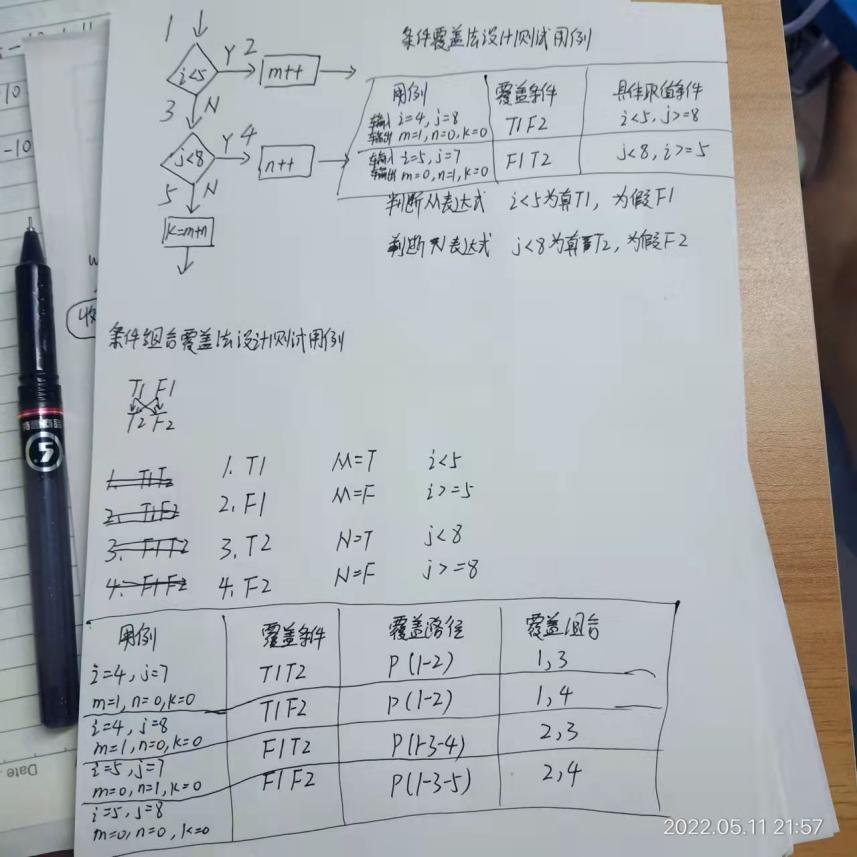 1
i<5
Y 2
m++
3
N
j<8
Y 4
n++
5
N
k=m+n
条件覆盖法设计测试用例
用例 覆盖条件 具体取值条件
输入 i=4, j=8
输出 m=1, n=0, k=0
T1F2
i<5, j>=8
输入 i=5, j=7
输出 m=0, n=1, k=0
F1T2
j<8, i>=5
判断M表达式 i<5为真T1, 为假F1
判断N表达式 j<8为真T2, 为假F2
条件组合覆盖法设计测试用例
T1 F1
T2 F2
1. T1T2 1. T1 M=T i<5
2. T1F2 2. F1 M=F i>=5
3. F1T2 3. T2 N=T j<8
4. F1F2 4. F2 N=F j>=8
用例 覆盖条件 覆盖路径 覆盖组合
i=4, j=7
m=1, n=0, k=0
T1T2 P(1-2) 1,3
i=4, j=8
m=1, n=0, k=0
T1F2 P(1-2) 1,4
i=5, j=7
m=0, n=1, k=0
F1T2 P(1-3-4) 2,3
i=5, j=8
m=0, n=0, k=0
F1F2 P(1-3-5) 2,4
Date
2022.05.11 21:57